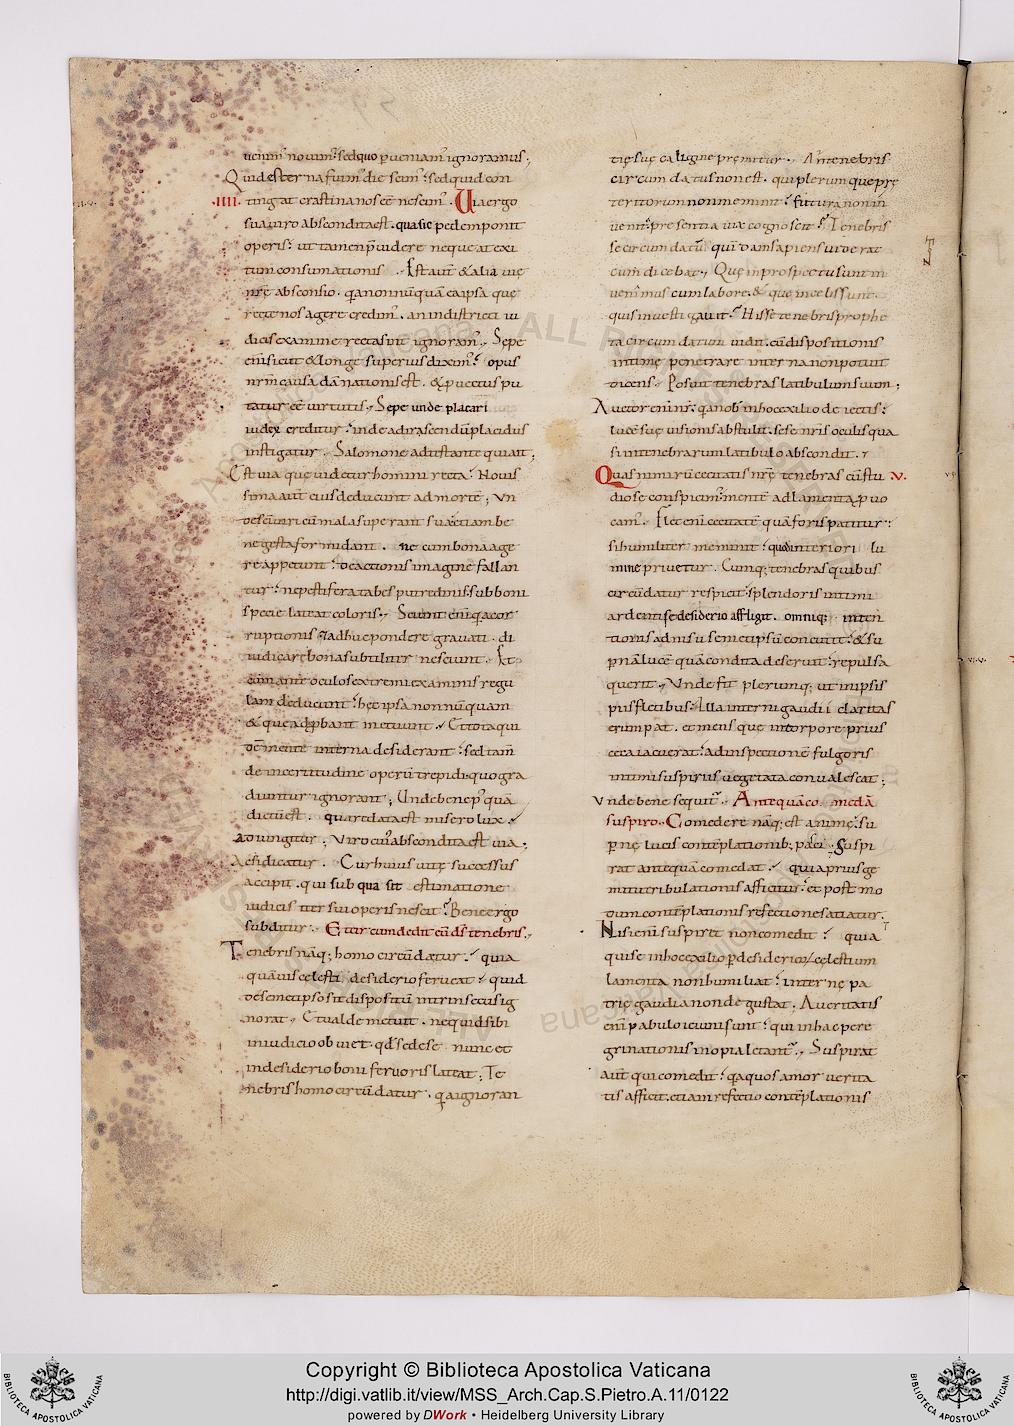 uenim' nouim'. sed quo p ueniam' ignoramus;
Quid esterna fuim' die scim'. sed quid con
.IIII. tingat crastina nos cē nescim'. Uia ergo
sua uiro abscondita est. qua sic pedem ponit
operis. ut tamen puidere nequeat exi
tum consumationis. Est aut & alia uię
nrę absconsio. qa non nūquā ea ipsa que
recte nos agere credim'. an in districti iu
dicis examine recta sint ignoram'. Sepe
enī sicut & longe superius dixim'. opus
nrm causa dānationis est. & puectus pu
tatur eē uirtutis. Sepe unde placari
iudex creditur. inde ad irascendū placidus
instigatur. Salomone adtestante qui ait;
Est uia que uidetur homini recta. Nouis
sima aut eius deducunt ad mortē; Vn
de sci uiri cū mala superant sua etiam be
ne gesta formidant. ne cum bona age
re appetunt. de actionis imagine fallan
tur. ne pestifera tabes putredinis sub boni
specie lateat coloris. Sciunt enī qa cor
ruptionis adhuc pondere grauati. di
iudicare bona subtiliter nesciunt. Et
cum ante oculos extremi examinis regu
lam deducunt. hęc ipsa non nūquam
& que adpbant metuunt. Et tota qui
dē mente interna desiderant. sed tam
de incertitudine operū trepidi. quo gra
diuntur ignorant; Unde bene p' quā
dictū est. quare data est misero lux.
Adiungitur. Viro cui' abscondita est uia.
Ac si dicatur. Cur huius uitę successus
accipit. qui sub qua sit estimatione
iudicis iter sui operis nescit. Bene ergo
subditur. Et circumdedit eū ds tenebris.
Tenebris nāq; homo circūdatur. quia
quāuis celesti desiderio ferueat. quid
de semetipso sit dispositū intrinsecus ig
norat. Et ualde metuit. ne quid sibi
in iudicio obuiet. qd se de se nunc et
in desiderio boni feruoris lateat; Te
nebris homo circūdatur. qa ignoran
tię suę caligine premitur. An tenebris
circumdatus non est. qui plerumque prę
teritorum non meminit. futura non in
uenit. presentia uix cognoscit. Tenebris
se circumdatū quidam sapiens uiderat
cum dicebat. Quę in prospectu sunt in
uenimus cum labore. & que in celis sunt.
quis inuestigauit. His se tenebris prophe
ta circumdatum uidit. cū dispositionis
intimę penetrare interna non potuit
dicens. Posuit tenebras latibulum suum;
Auctor enī nr. qa nob in hoc exilio deiectis.
lucē suę uisionis abstulit. sese nris oculis qua
si in tenebrarum latibulo abscondit.
Quas nimirū cecitatis nrę tenebras cū stu .V.
diose conspicim'. mentē ad lamenta puo
cam'. Flet enī cecitatē quā foris patitur.
si humiliter meminit. quod interiori lu
mine priuetur. Cumq; tenebras quibus
circūdatur respicit. splendoris intimi
ardenti se desiderio affligit. omniq; inten
tionis adnisu semetipsū concutit. & su
pnā lucē quā condita deseruit. repulsa
querit. Vnde fit plerumq; ut in ipsis
piis fletibus. illa interni gaudii claritas
erumpat. et mens que in torpore prius
ceca iacuerat. ad inspectionē fulgoris
intimi suspiriis uegetata conualescat;
Vnde bene sequit'. Antequā comedā
suspiro. Comedere nāq; est animę. su
pnę lucis contēplationib; pasci. Suspi
rat antequā comedat. quia prius ge
mitu tribulationis afficitur. et post mo
dum contēplationis refectione satiatur.
Nisi enī suspiret non comedit. quia
qui se in hoc exilio p desideriorū celestium
lamenta non humiliat. internę pa
trię gaudia non degustat. A ueritatis
enī pabulo ieiuni sunt. qui in hac pere
grinationis inopia letant'. Suspirat
aut qui comedit. qa quos amor uerita
tis afficit. etiam refectio contēplationis
Copyright © Biblioteca Apostolica Vaticana
http://digi.vatlib.it/view/MSS_Arch.Cap.S.Pietro.A.11/0122
powered by DWork • Heidelberg University Library